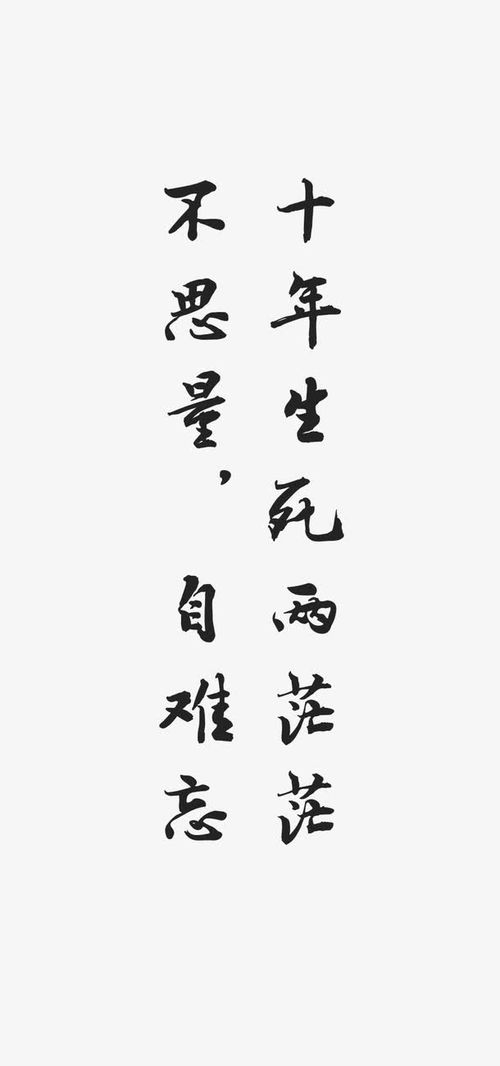 十年生死两茫茫
不思量，自难忘